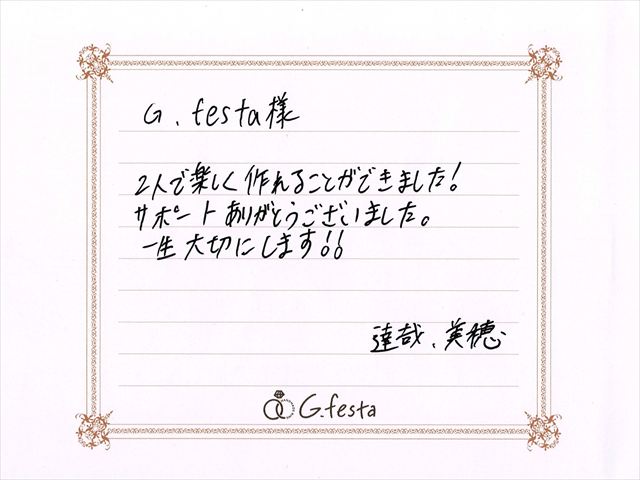 G.festa様
2人で楽しく作れることができました!
サポートありがとうございました。
一生大切にします!!
達哉、英穂
G.festa